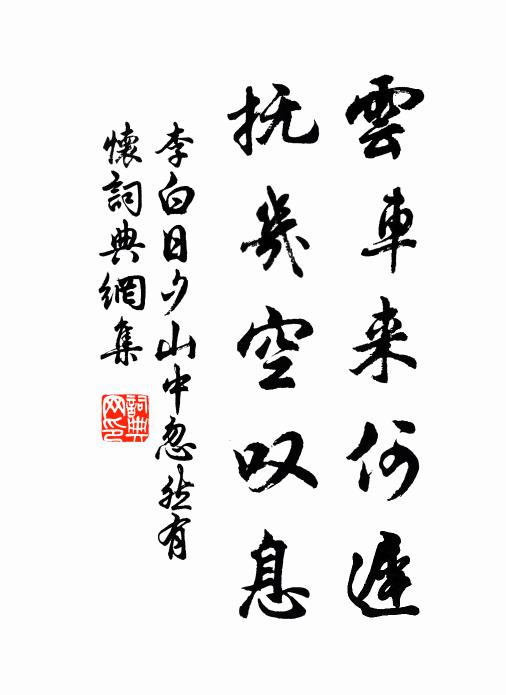 雲車来何遲
抚幾空叹息
李白日夕山中忽然有
懷詞典網集
詞典
网印